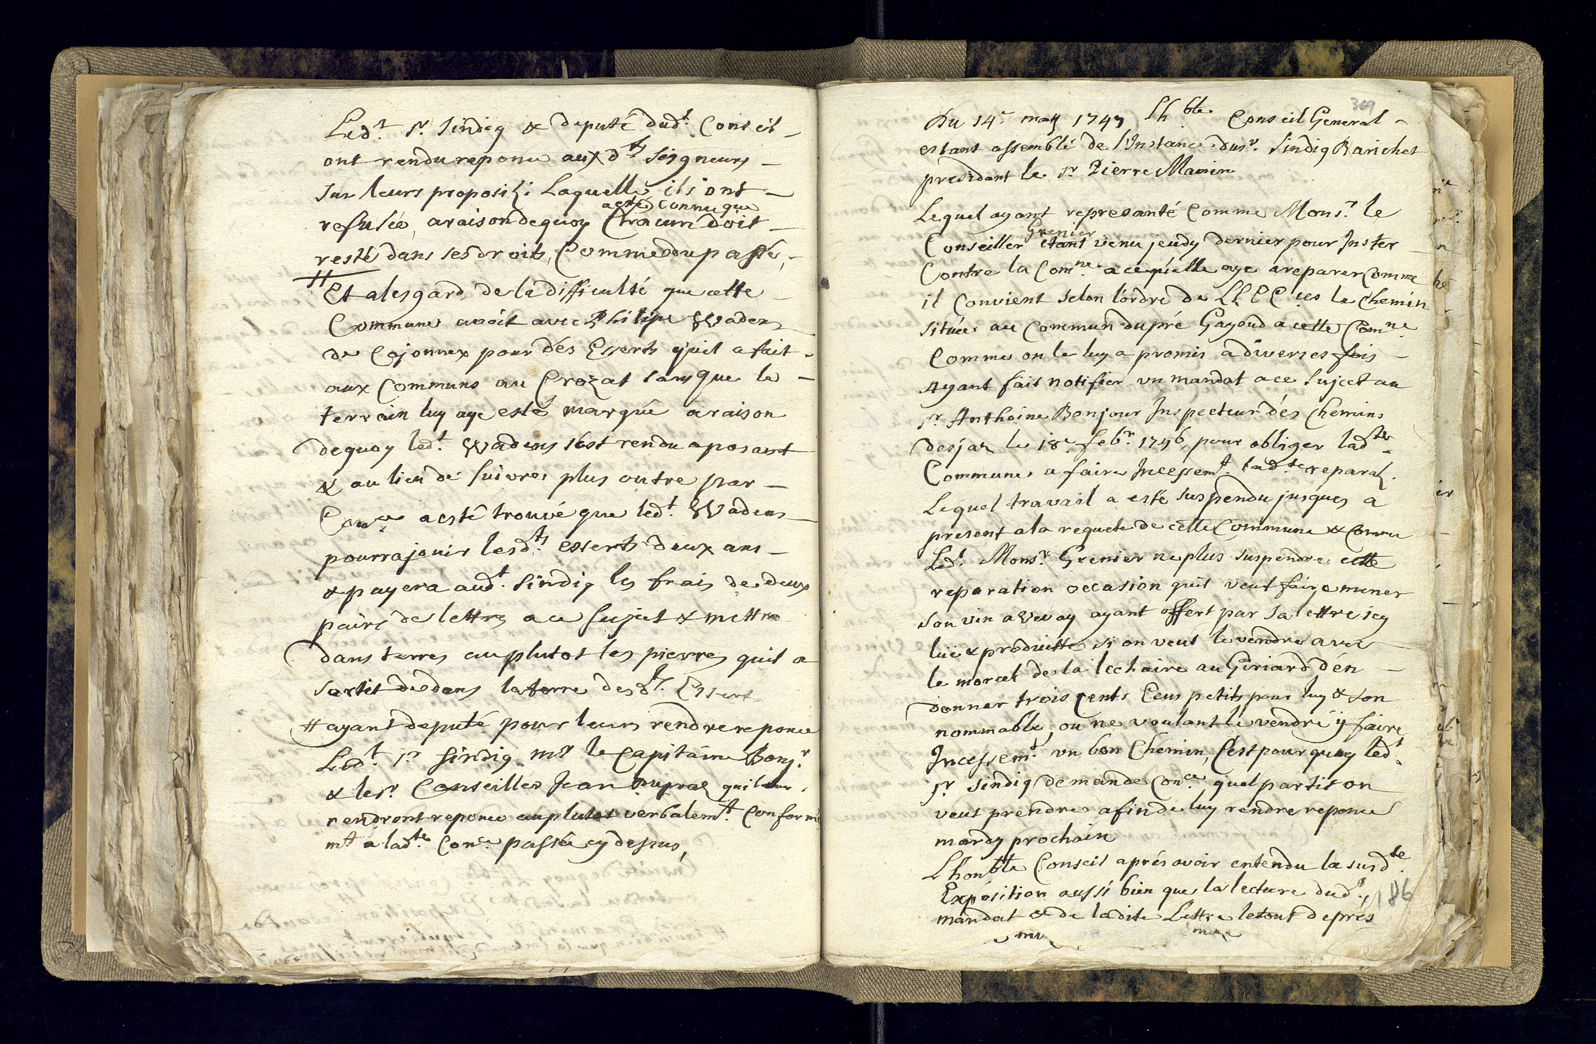 Led.t S.r Sindiq & deputé dud.t Conseil
ont rendu reponce aux d.ts Seigneurs
sur leurs proposit.: Laquelle ils ont
refusée, a raison de quoy Chacun doit
acte Connu que
resté dans ses droits, Comme du passé,
#
Et a lesgard de la difficulté que cette
Commune avoit avec Philipe Wadens
de Cojonnex pour des Esserts qu'il a fait
aux Communs au Crozat sans que le
terrain luy aye esté marqué a raison
dequoy led.t Wadens s'est rendu aposant
& au lieu de suivre plus outre par
Con.ce a esté trouvé que led.t Wadens
pourra jouir lesd.ts esserts deux ans
& payera aud.t Sindiq les frais de deux
pairs de lettres a ce sujet & mettre
dans terres au plutot les pierres qu'il a
sortit dedans la terre desd.ts Essert
# ayant deputé pour leurs rendre reponce
Led.t S.r Sindiq m.r le Capitaine Bonj.r
& le s.r Conseiller Jean Dupraz qui leur
rendront reponce au plutot verbalem.t Conformé
m.t a lad.te Con.ce passée cy dessus,
369
Du 14.e may 1747 Lh.ble Conseil General
estant assemblé de l'Instance dus.r Sindiq Barichet
presidant le S.r Pierre Mamin
Lequel ayant represanté Comme Mons.r le
Conseiller Grenier etant venu jeudy dernier pour Inster
Contre la Com.ne a ce qu'elle aye a reparer Comme
il Convient selon l'ordre de LLEE ses le Chemin
située au Commun du pré Gayoud a cette Com.ne
Comme on le luy a promis a diverses fois
Ayant fait notifier un mandat a ce sujet au
S.r Anthoine Bonjour Inspecteur des Chemins
desja le 18.e feb.r 1746, pour obliger lad.te
Commune a faire Incessem.t lad.te reparat.
Lequel travail a esté suspendu jusques a
present a la requete de cette Commune & Comme
Led.t Mons.r Grenier ne plus suspendre cette
reparation occasion qu'il veut faire mener
son vin a Vevay ayant offert par sa lettre icy
luë & produitte si on veut le vendre avec
le morcel de la lechaire au Giriard d'en
donner trois cents Ecus petits pour luy & son
nommable, ou ne voulant le vendre y faire
Incessem.t un bon Chemin, C'est pourquoy led.t
S.r Sindiq demande Con.ce quel partit on
veut prendre afin de luy rendre reponce
mardy prochain
L'hon.ble Conseil aprés avoir entendu la susd.te
Exposition aussi bien que la lecture dud.t
186
mandat & de ladite Lettre le tout d'eprés